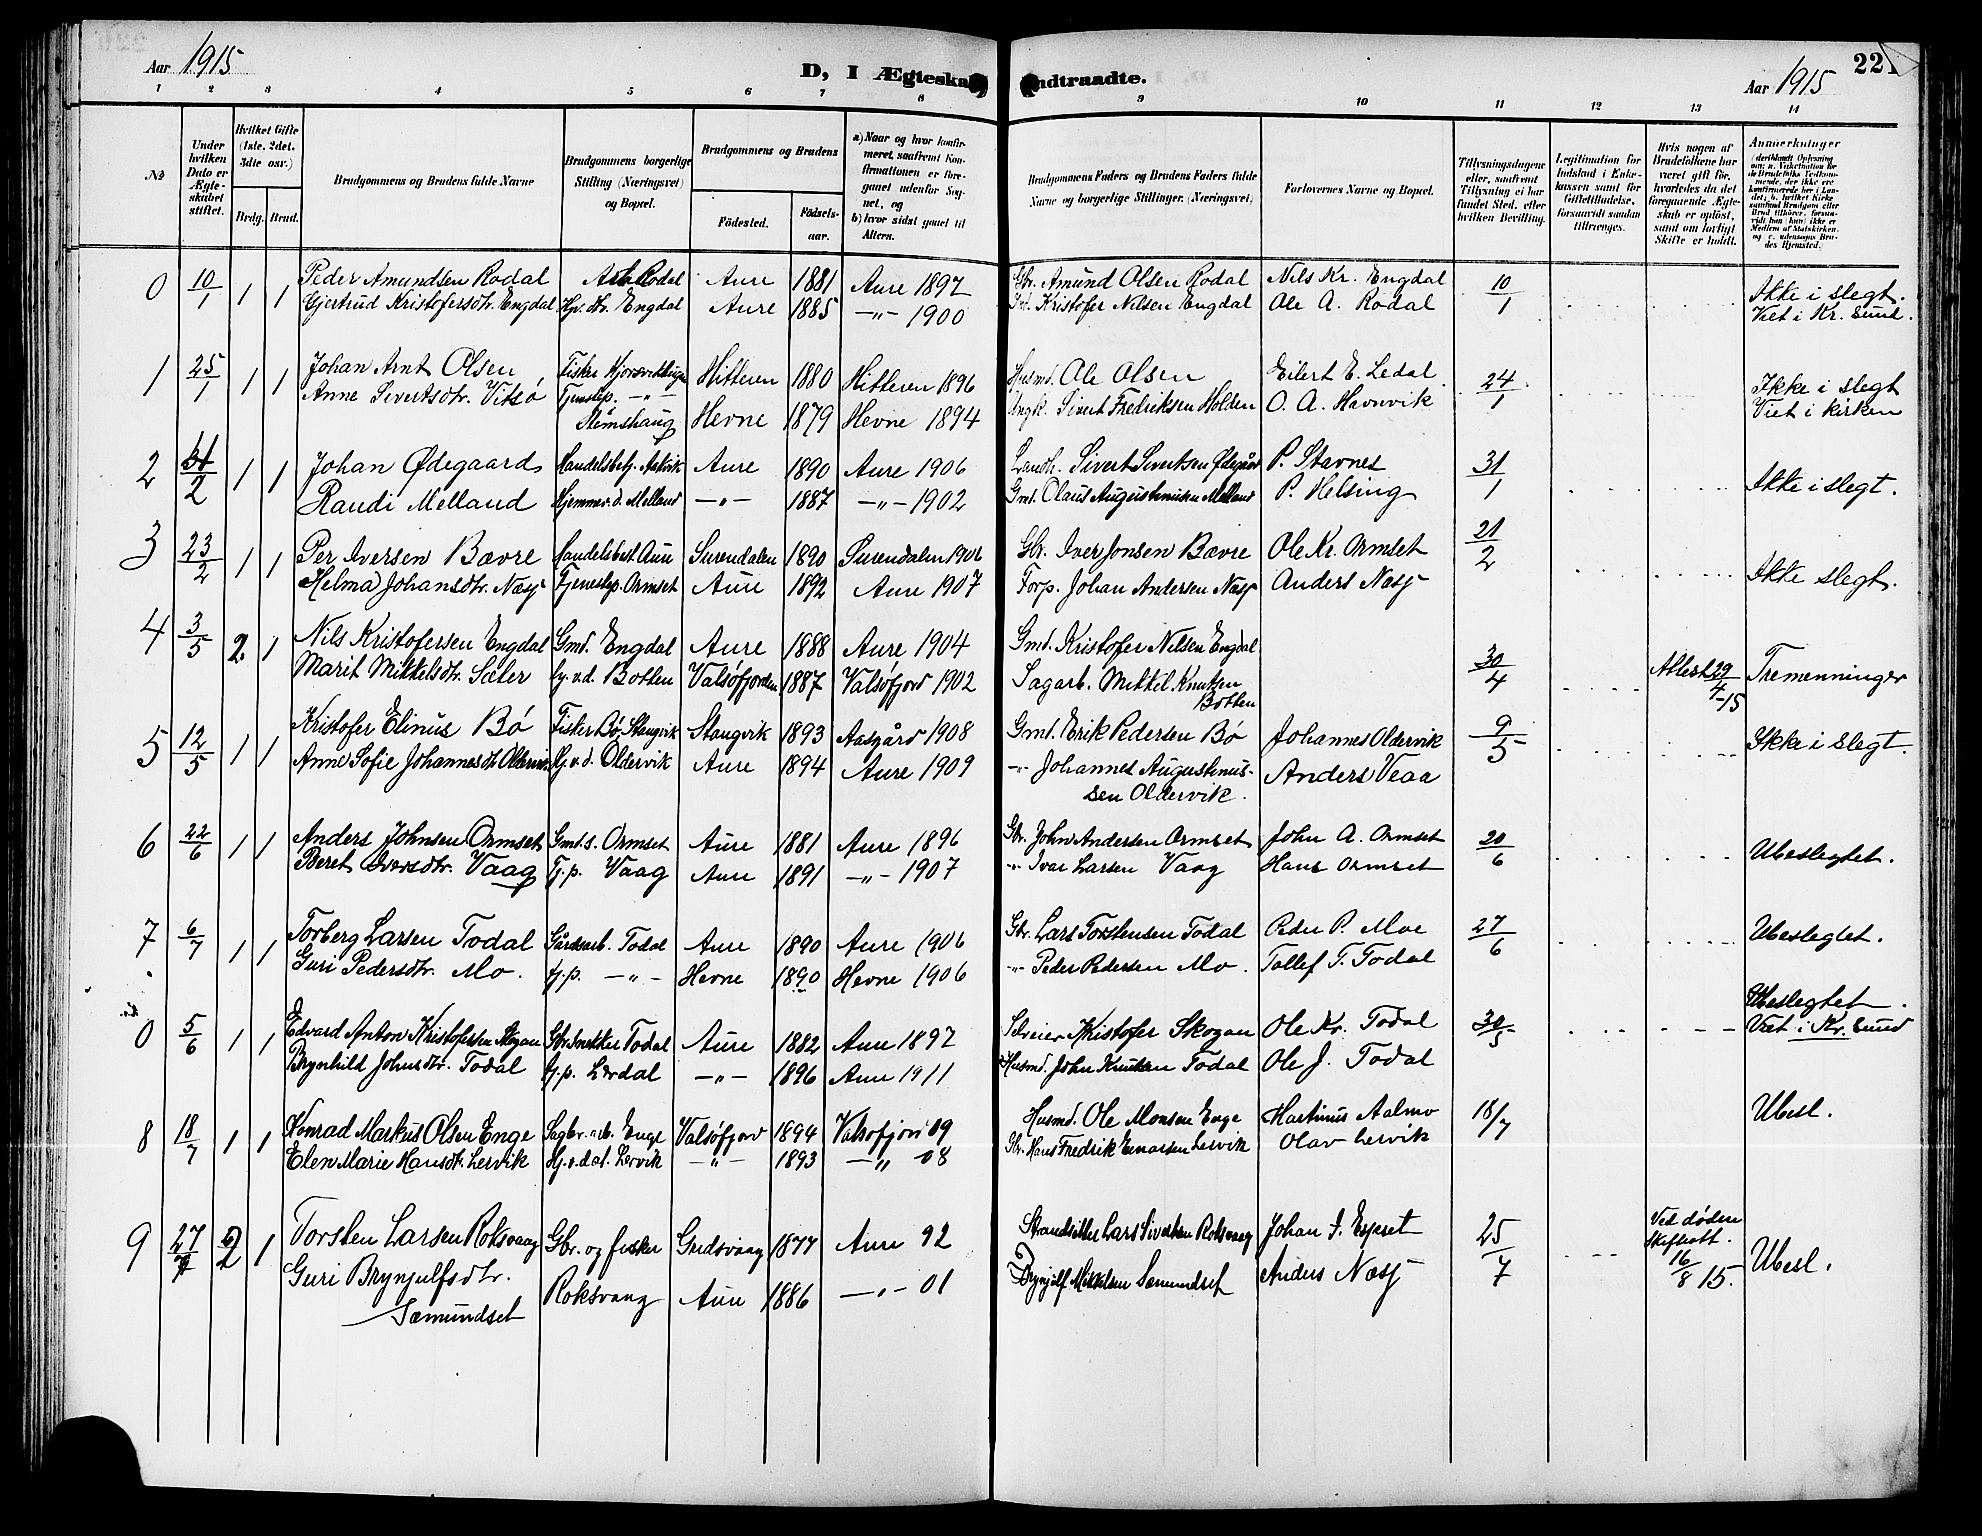 Aar 1915
D, I Ægteskab Indtraadte.
Aar 1915
221
1 2 3 4 5 6 7 8 9 10 11 12 13 14
No
Under hvilken Dato er Ægteskabet stiftet.
Hvilket Gifte (1ste. 2det. 3dte osv.)
Brdg. Brud.
Brudgommens og Brudens fulde Navne
Brudgommens borgerlige Stilling (Næringsvei) og Bopæl.
Brudgommens og Brudens
Födested.
Födsels-aar.
a) Naar og hvor konfirmeret, saafremt Konfirmationen er foregaaet udenfor Sognet, og
b) hvor sidst gaaet til Alters.
Brudgommens Faders og Brudens Faders fulde Navne og borgerlige Stillinger. (Næringsvei)
Forlovernes Navne og Bopæl.
Tillysningsdagene eller, saafremt Tillysning ei har fundet Sted. efter hvilken Bevilling.
Legitimation for Indskud i Enkekassen samt för Giftetilladelse, forsaavidt saadan tiltrænges.
Hvis nogen af Brudefolkene har været gift för, hvorledes da det foregaaende Ægteskab er oplöst, samt om lovligt Skifte er holdt.
Anmerkninger
0 10/1 1 1 Peder Amundsen Rodal Rodal Aure 1881 Aure 1897 Gbr. Amund Olsen Rodal Nils Kr. Engdal 10/1 Ikke i slegt.
Gjertrud Kristofersdtr. Engdal Hjv. dtr. Engdal Aure 1885 -"- 1900 Kristofer Nilsen Engdal Ole A. Rodal Viet i Kr. sund.
1 25/1 1 1 Johan Arnt Olsen Fisker Hitteren 1880 Hitteren 1896 Husmd. Ole Olsen Eilert E. Ledal 24/1 Ikke i slegt
Anne Sivertsdtr. Vitsø Tjenstep. -"- Stemshaug Hevne 1879 Hevne 1894 Sivert Fredriksen Holden O. A. Havnvik Viet i kirken
2 31/2 1 1 Johan Ødegaard Handelsbetj. Aure 1890 Aure 1906 Landh. Sivert Sivertsen Ødegård P. Stavnes 31/1 Ikke i slegt.
Randi Melland Hjemmev. d. Melland -"- 1887 -"- 1902 Gmd. Olaus Augustinusen Melland P. Helsing
3 23/2 1 1 Per Iversen Bævre Handelsbest. Aure Surendalen 1890 Surendalen 1906 Gbr. Iver Jonsen Bævre Ole Kr. Ormset 21/2 Ikke slegt.
Helma Johansdtr. Næss Tjenestep. Ormset Aure 1892 Aure 1907 Forp. Johan Andersen Næss Anders Næss
4 3/5 2. 1 Nils Kristofersen Engdal Gmd. Engdal Aure 1888 Aure 1904 Gmd. Kristofer Nilsen Engdal 30/4 29/4-15 Tremenninger
Marit Mikkelsdtr. Sæter Hj. v.d. Botten Valsøfjorden 1887 Valsøfjord 1902 Sagarb. Mikkel Knutsen Botten
5 12/5 1 1 Kristofer Elinus Bø Fisker Bø, Stangvik Stangvik 1893 Aasgård 1908 Gmd. Erik Pedersen Bø Johannes Oldervik 9/5 Ikke i slegt.
Anne Sofie Johannesdt Oldervik Hj. v. d. Oldervik Aure 1894 Aure 1909 -"- Johannes Augustinussen Oldervik. Anders Veaa
6 22/6 1 1 Anders Johnsen Ormset Gmd s. Ormset Aure 1881 Aure 1896 Gbr. John Andersen Ormset John A. Ormset 20/6 Ubeslegtet.
Beret Iversdtr. Vaag Tj. p. Vaag Aure 1891 -"- 1907 -"- Ivar Larsen Vaag Hans Ormset
7 6/7 1 1 Torberg Larsen Todal Gårdsarb. Todal Aure 1890 Aure 1906 Gbr. Lars Torstensen Todal Peder P. Moe 27/6 Ubeslegtet.
Guri Pedersdtr. Mo. tj. p. -"- Hevne 1890 Hevne 1906 -"- Peder Pedersen Mo. Tollef T. Todal
0 5/6 1 1 Edvard Anton Kristofersen Skogan Todal Aure 1882 Aure 1897 Selveier Kristofer Skogan Ole Kr. Todal 30/5 Ubeslegtet. Viet i Kr. sund
Brynhild Johnsdtr. Todal tj. p. Lerdal -"- 1896 Aure 1911 Husmd. John Knutsen Todal Ole J. Todal
8 18/7 1 1 Konrad Markus Olsen Enge Sagbr. arb. Enge Valsøfjord 1894 Valsøfjord 09 Husmd. Ole Monsen Enge Martinus Aalmo 18/7 Ubesl.
Elen Marie Hansdtr. Lervik Hj. v. dat. Lervik -"- 1893 -"- 08 Gbr. Hans Fredrik Einarsen Lervik Olav Lervik
9 27/7 2 1 Torsten Larsen Roksvaag Gbr. og fisker Gredsvaag 1877 Aure 92 Strandsitter Lars Sivertsen Roksvaag Johan J. Espset 25/7 Ved døden Skiftatt. 16/8 15. Ubesl.
Guri Brynjulfsdtr. Sæmundset Roksvaag Aure 1886 -"- 01 Brynjulf Mikkelsen Sæmundset Anders Næss